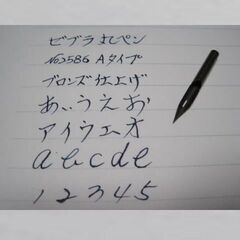 ゼブラ よしペン
No2586 Aタイプ
ブロンズ仕上げ
あぃうえお
アイウエオ
abcde
12345